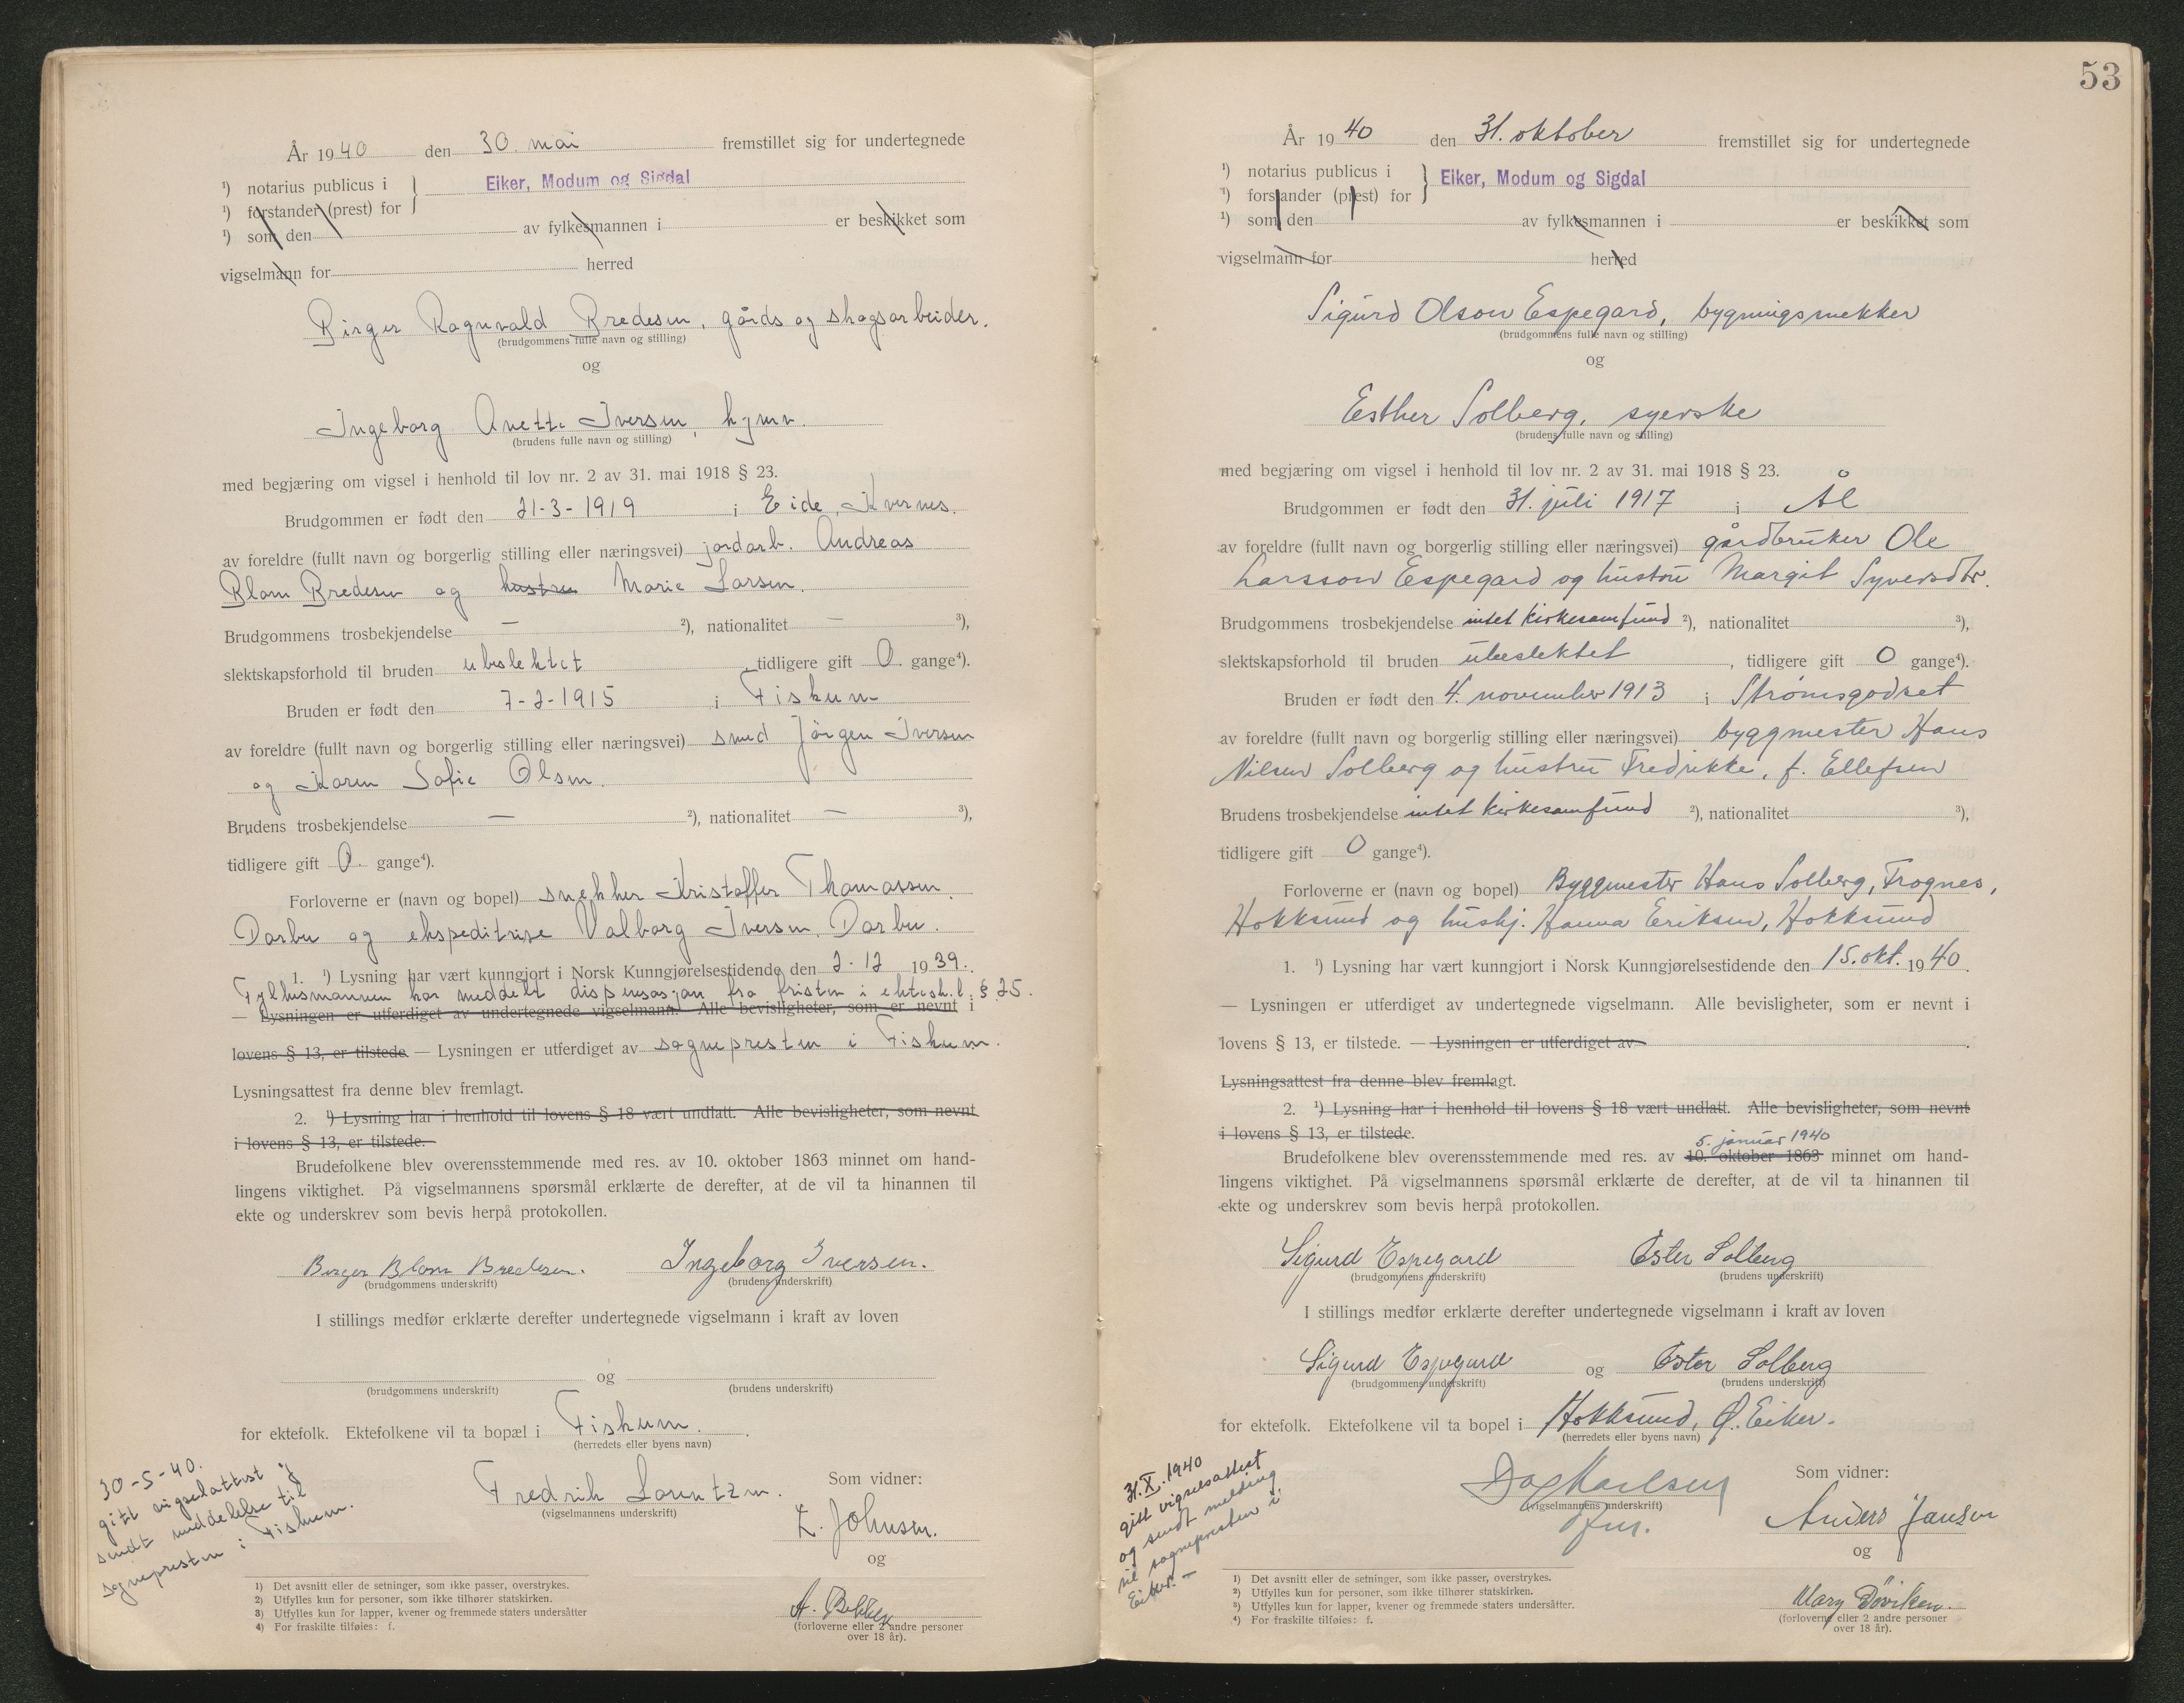 År 1940 den 30. mai fremstillet sig for undertegnede
¹) notarius publicus i } Eiker, Modum og Sigdal
¹) forstander (prest) for
¹) som den av fylkesmannen i er beskikket som
vigselmann for herred
Birger Ragnvald Bredesen, gårds og skogsarbeider.
(brudgommens fulle navn og stilling)
og
Ingeborg Anette Iversen, hjmv.
(brudens fulle navn og stilling)
med begjæring om vigsel i henhold til lov nr. 2 av 31. mai 1918 § 23.
Brudgommen er født den 21-3-1919 i Eide, Kvernes.
av foreldre (fullt navn og borgerlig stilling eller næringsvei) jordarb. Andreas
Blom Bredesen og hustru Marie Larsen.
Brudgommens trosbekjendelse — ²), nationalitet — ³),
slektskapsforhold til bruden ubeslektet, tidligere gift 0 gange⁴).
Bruden er født den 7-2-1915 i Fiskum
av foreldre (fullt navn og borgerlig stilling eller næringsvei) smed Jørgen Iversen
og Karen Sofie Olsen.
Brudens trosbekjendelse — ²), nationalitet — ³),
tidligere gift 0. gange⁴).
Forloverne er (navn og bopel) snekker Kristoffer Thomassen,
Darbu og ekspeditrise Valborg Iversen, Darbu.
1. ¹) Lysning har vært kunngjort i Norsk Kunngjørelsestidende den 2-12 1939.
Fylkesmannen har meddelt dispensasjon fra fristen i ektesk.l. § 25.
— Lysningen er utferdiget av undertegnede vigselmann. Alle bevisligheter, som er nevnt i
lovens § 13, er tilstede. — Lysningen er utferdiget av sognepresten i Fiskum.
Lysningsattest fra denne blev fremlagt.
2. ¹) Lysning har i henhold til lovens § 18 vært undlatt. Alle bevisligheter, som nevnt
i lovens § 13, er tilstede.
Brudefolkene blev overensstemmende med res. av 10. oktober 1863 minnet om hand-
lingens viktighet. På vigselmannens spørsmål erklærte de derefter, at de vil ta hinannen til
ekte og underskrev som bevis herpå protokollen.
Birger Blom Bredesen. Ingeborg Iversen.
(brudgommens underskrift) (brudens underskrift)
I stillings medfør erklærte derefter undertegnede vigselmann i kraft av loven
og
(brudgommens underskrift) (brudens underskrift)
for ektefolk. Ektefolkene vil ta bopæl i Fiskum.
(herredets eller byens navn)
30-5-40.
gitt vigselattest og
sendt meddelelse til
sognepresten i Fiskum.
Fredrik Lorentzen.
(vigselmannens underskrift)
Som vidner:
Z. Johnsen.
og
A. Bekken
(forloverne eller 2 andre personer
over 18 år).
1) Det avsnitt eller de setninger, som ikke passer, overstrykes.
2) Utfylles kun for personer, som ikke tilhører statskirken.
3) Utfylles kun for lapper, kvener og fremmede staters undersåtter
4) For fraskilte tilføies: f.
53
År 1940 den 31. oktober fremstillet sig for undertegnede
¹) notarius publicus i } Eiker, Modum og Sigdal
¹) forstander (prest) for
¹) som den av fylkesmannen i er beskikket som
vigselmann for herred
Sigurd Olson Espegard, bygningssnekker
(brudgommens fulle navn og stilling)
og
Esther Solberg, syerske
(brudens fulle navn og stilling)
med begjæring om vigsel i henhold til lov nr. 2 av 31. mai 1918 § 23.
Brudgommen er født den 31. juli 1917 i Ål
av foreldre (fullt navn og borgerlig stilling eller næringsvei) gårdbruker Ole
Larsson Espegard og hustru Margit Syversdtr.
Brudgommens trosbekjendelse intet kirkesamfund ²), nationalitet ³),
slektskapsforhold til bruden ubeslektet, tidligere gift 0 gange⁴).
Bruden er født den 4. november 1913 i Strømsgodset
av foreldre (fullt navn og borgerlig stilling eller næringsvei) byggmester Hans
Nilsen Solberg og hustru Fredrikke, f. Ellefsen
Brudens trosbekjendelse intet kirkesamfund ²), nationalitet ³),
tidligere gift 0 gange⁴).
Forloverne er (navn og bopel) Byggmester Hans Solberg, Frognes,
Hokksund og hushj. Hanna Eriksen, Hokksund
1. ¹) Lysning har vært kunngjort i Norsk Kunngjørelsestidende den 15. okt. 1940.
— Lysningen er utferdiget av undertegnede vigselmann. Alle bevisligheter, som er nevnt i
lovens § 13, er tilstede. — Lysningen er utferdiget av
Lysningsattest fra denne blev fremlagt.
2. ¹) Lysning har i henhold til lovens § 18 vært undlatt. Alle bevisligheter, som nevnt
i lovens § 13, er tilstede.
5. januar 1940
Brudefolkene blev overensstemmende med res. av 10. oktober 1863 minnet om hand-
lingens viktighet. På vigselmannens spørsmål erklærte de derefter, at de vil ta hinannen til
ekte og underskrev som bevis herpå protokollen.
Sigurd Espegard Ester Solberg
(brudgommens underskrift) (brudens underskrift)
I stillings medfør erklærte derefter undertegnede vigselmann i kraft av loven
Sigurd Espegard og Ester Solberg
(brudgommens underskrift) (brudens underskrift)
for ektefolk. Ektefolkene vil ta bopel i Hokksund, Ø. Eiker.
(herredets eller byens navn)
31.X.1940
gitt vigselsattest
og sendt melding
til sognepresten i
Eiker. —
Dag Karlsen
(vigselmannens underskrift)
Som vidner:
Anders Jansen
og
Mary Døviken.
(forloverne eller 2 andre personer
over 18 år).
1) Det avsnitt eller de setninger, som ikke passer, overstrykes.
2) Utfylles kun for personer, som ikke tilhører statskirken.
3) Utfylles kun for lapper, kvener og fremmede staters undersåtter.
4) For fraskilte tilføies: f.